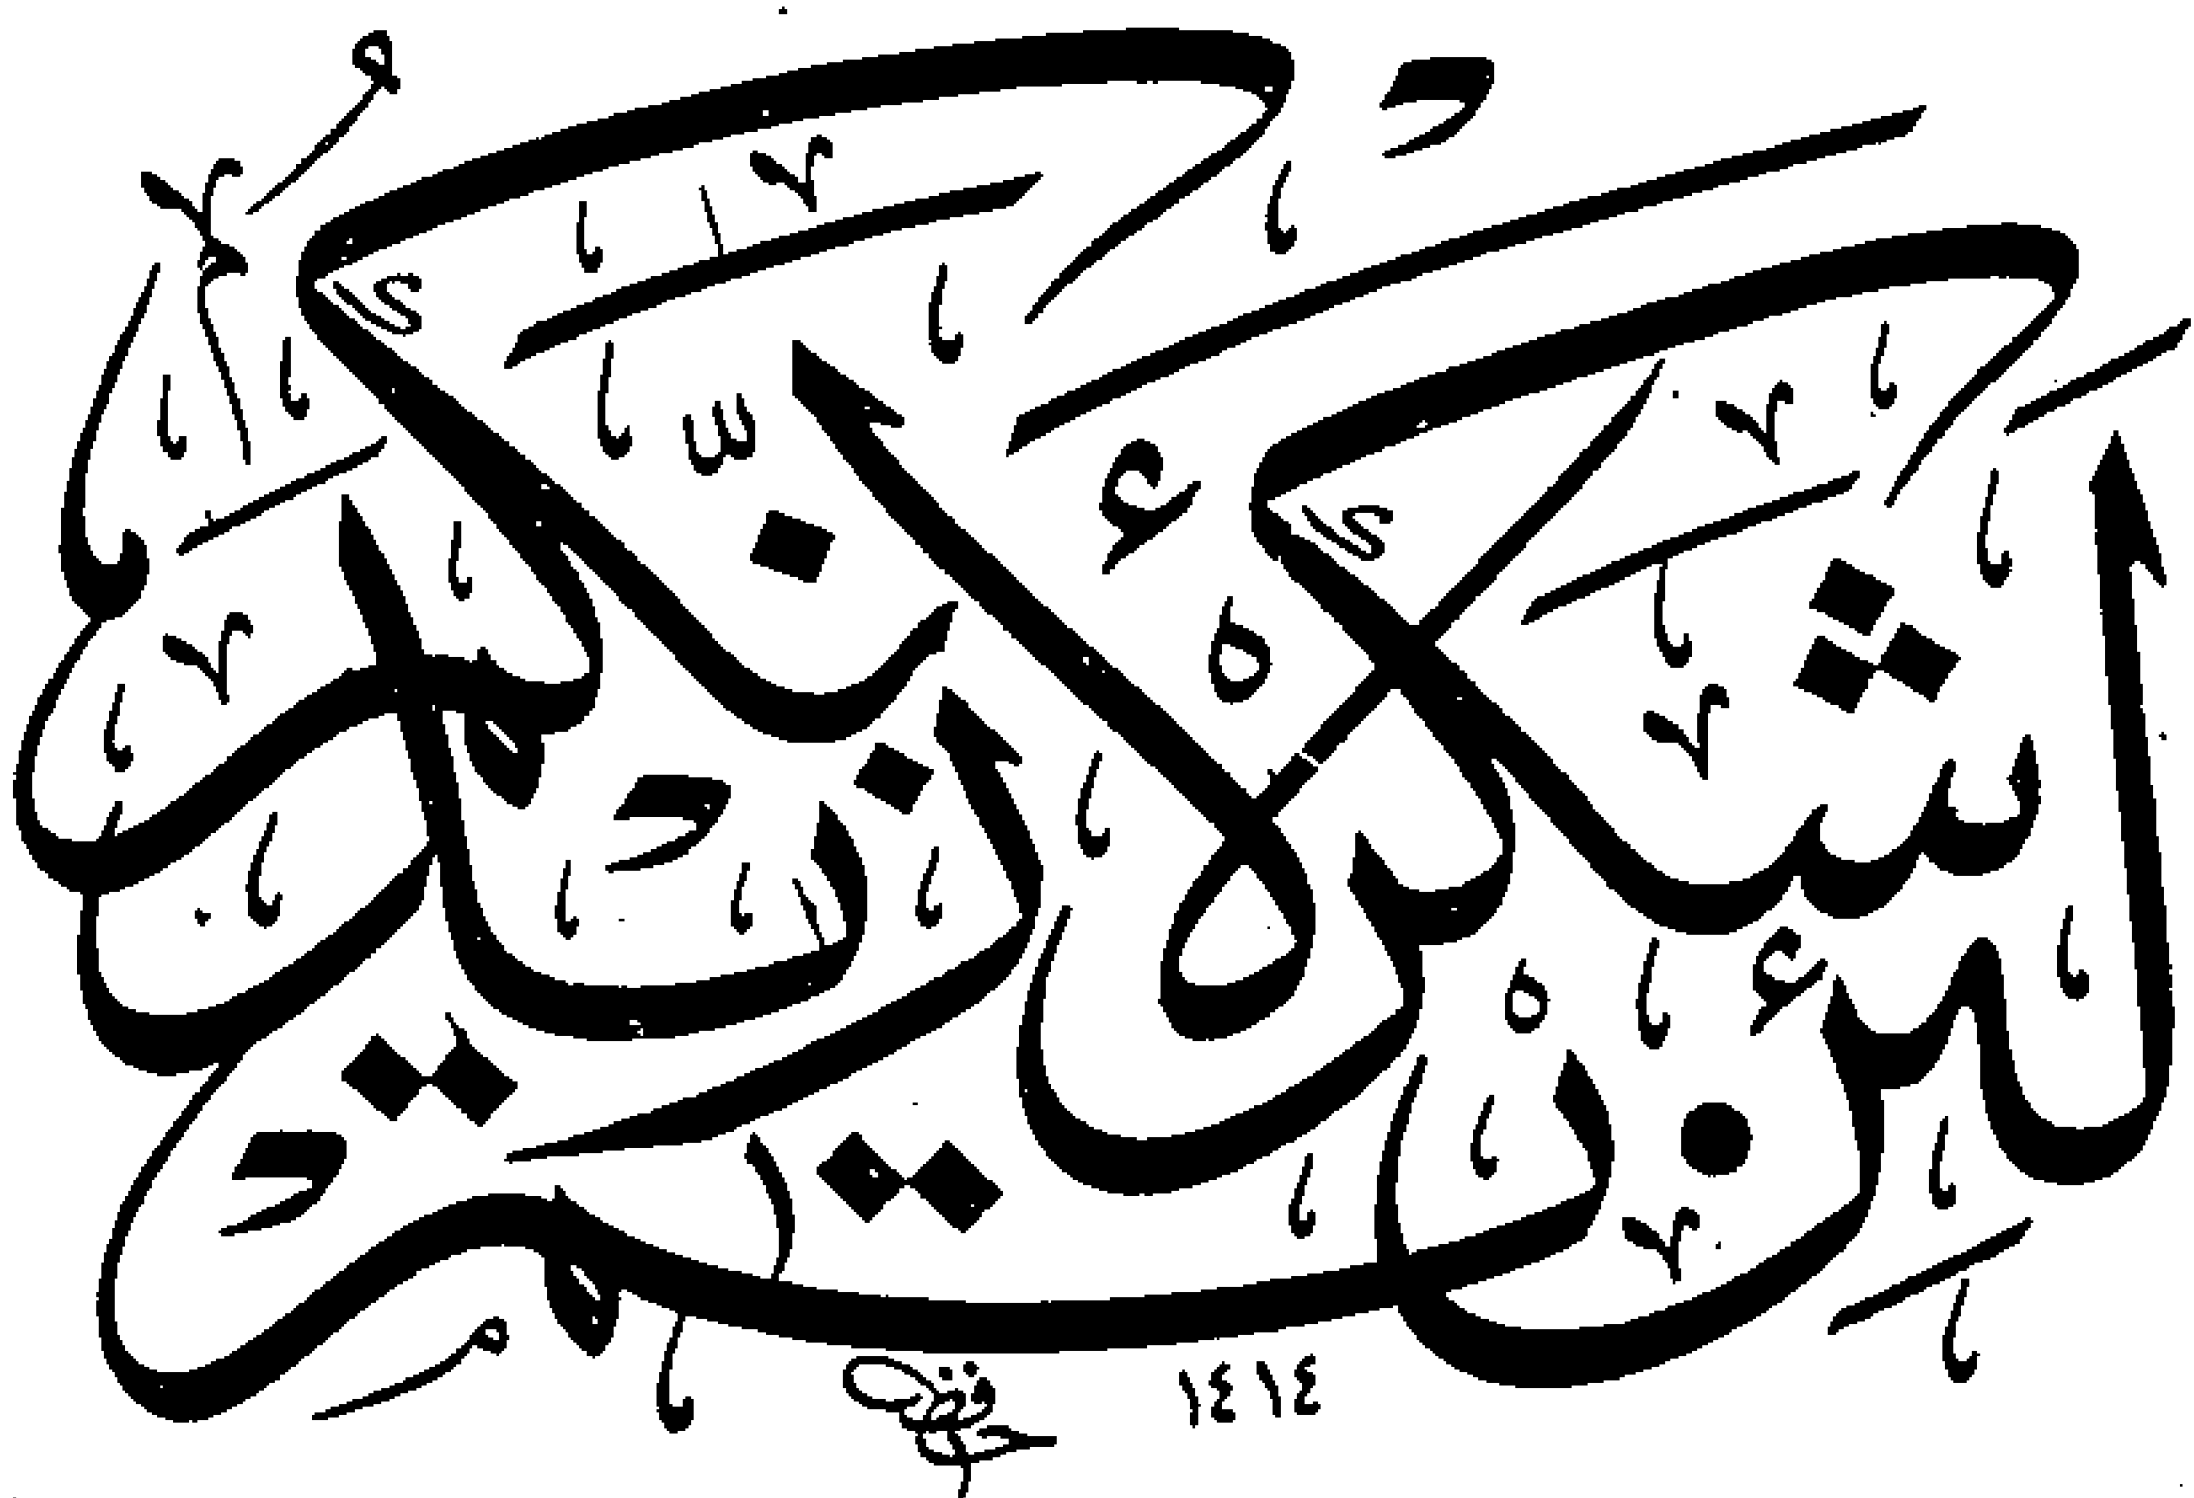 لئن شكرتم لأزيدنكم
١٤١٤